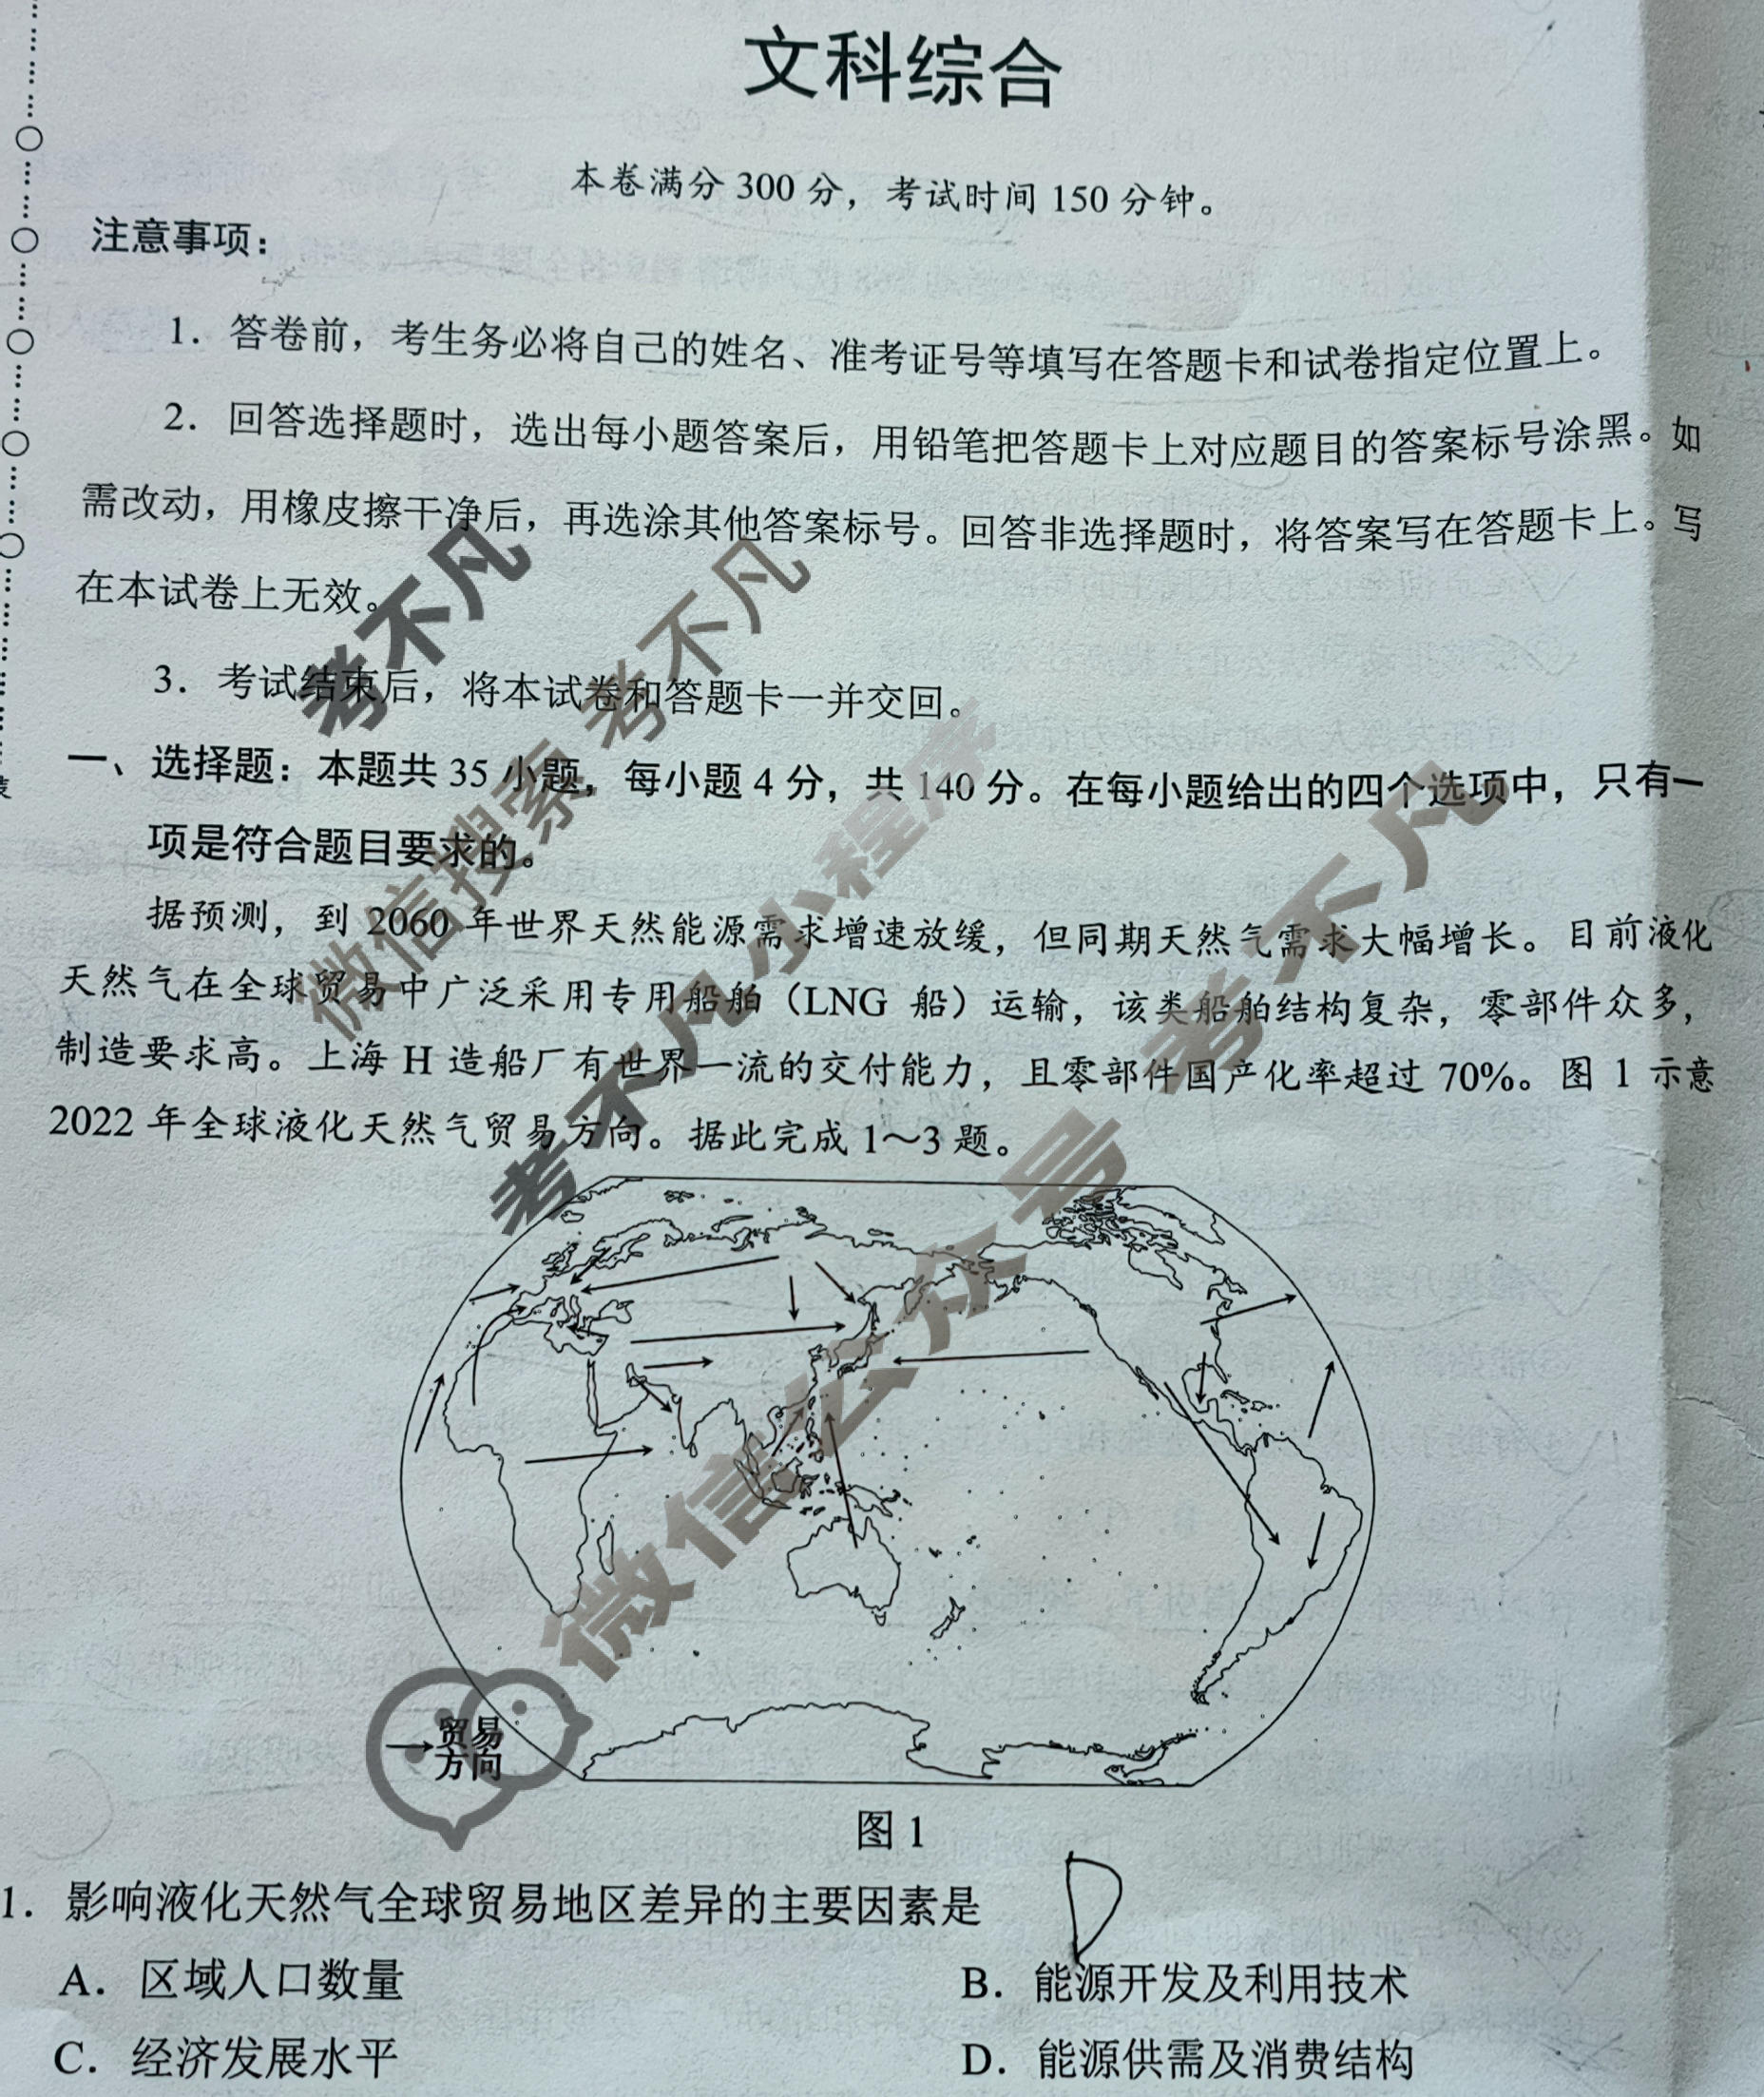 文科综合
本卷满分 300 分，考试时间 150 分钟。
注意事项：
1．答卷前，考生务必将自己的姓名、准考证号等填写在答题卡和试卷指定位置上。
2．回答选择题时，选出每小题答案后，用铅笔把答题卡上对应题目的答案标号涂黑。如
需改动，用橡皮擦干净后，再选涂其他答案标号。回答非选择题时，将答案写在答题卡上。写
在本试卷上无效。
3．考试结束后，将本试卷和答题卡一并交回。
一、选择题：本题共 35 小题，每小题 4 分，共 140 分。在每小题给出的四个选项中，只有一
项是符合题目要求的。
据预测，到 2060 年世界天然能源需求增速放缓，但同期天然气需求大幅增长。目前液化
天然气在全球贸易中广泛采用专用船舶（LNG 船）运输，该类船舶结构复杂，零部件众多，
制造要求高。上海 H 造船厂有世界一流的交付能力，且零部件国产化率超过 70%。图 1 示意
2022 年全球液化天然气贸易方向。据此完成 1～3 题。
贸易
方向
图 1
1．影响液化天然气全球贸易地区差异的主要因素是
D
A．区域人口数量
B．能源开发及利用技术
C．经济发展水平
D．能源供需及消费结构
考不凡
微信搜索 考不凡
考不凡小程序
微信公众号 考不凡
装